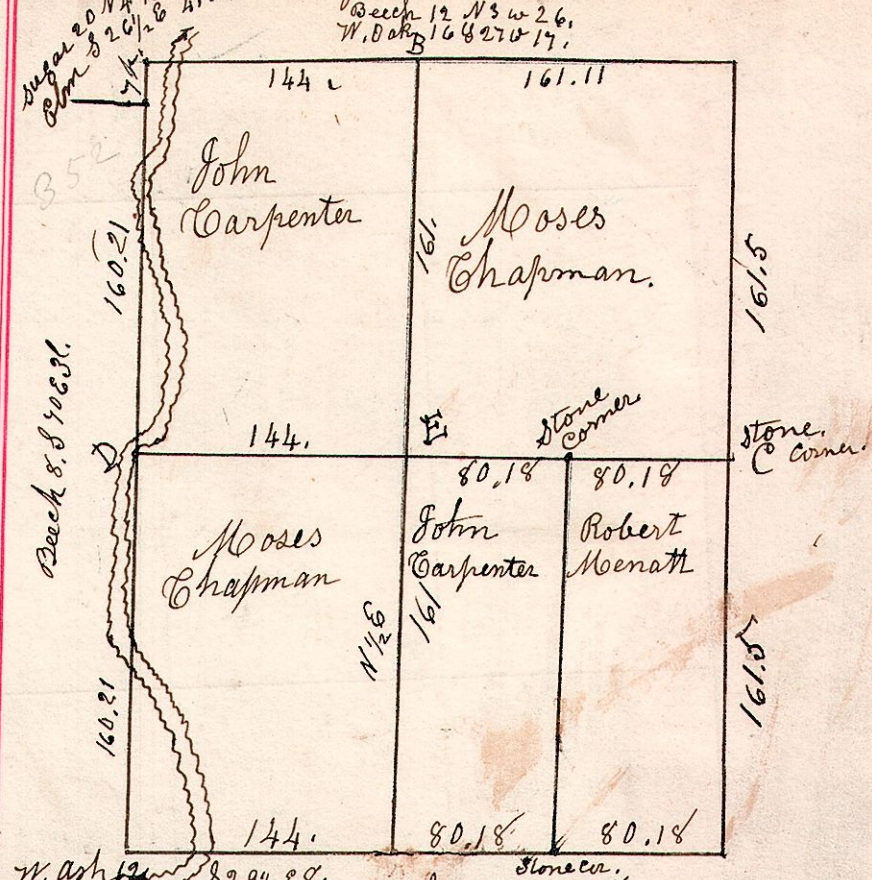 Sugar 20 N 4
Elm S 26 1/2 E
Beech 12 N 3 W 26.
W. Oak 16 S 27 W 17.
B
144
161.11
352
John
Carpenter
Moses
Chapman.
160.21
161.
161.5
Beech 8. S 70 E 31.
D
144.
E
Stone
Corner
Stone.
C Corner.
80.18
80.18
Moses
Chapman
John
Carpenter
Robert
Menatt
N 1/2 E
161
160.21
161.5
144.
80.18
80.18
W. Ash 12
Stone cor.